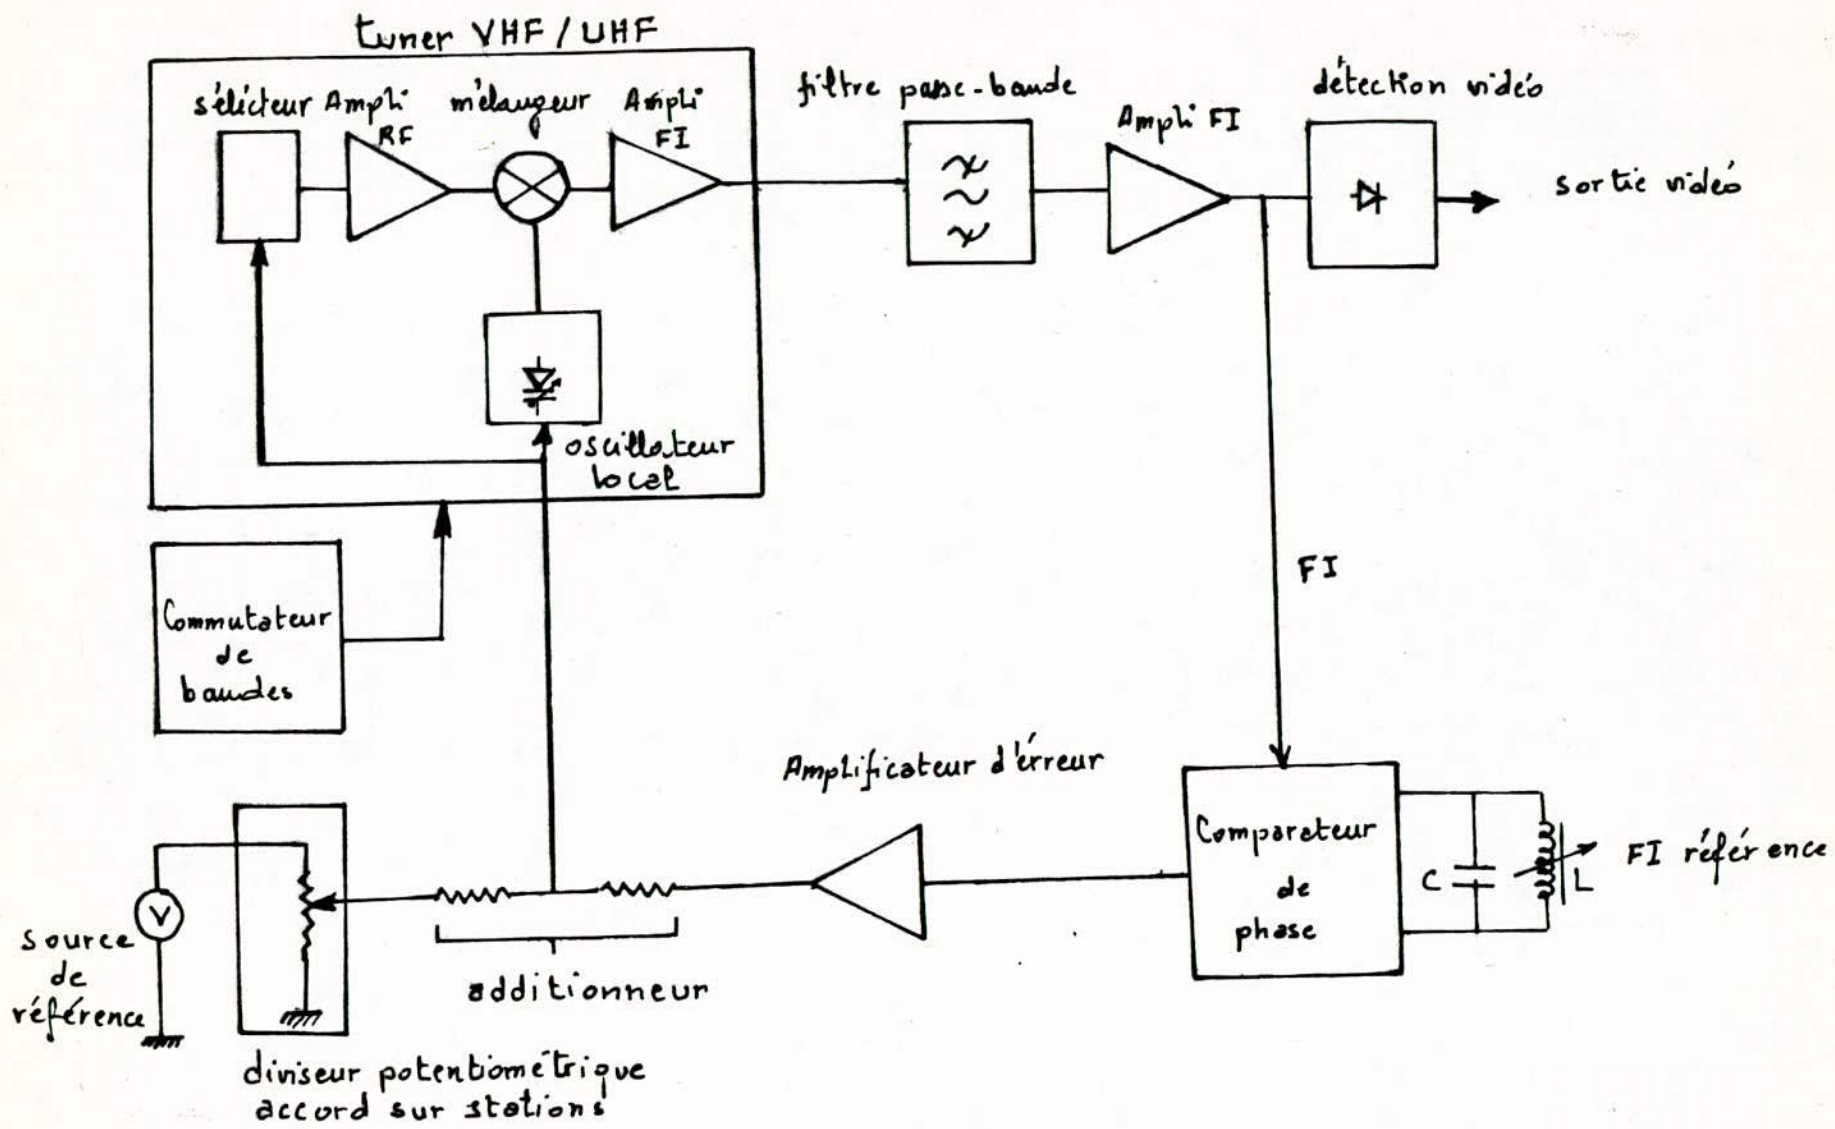 tuner VHF / UHF
sélécteur Ampli RF
mélangeur
Ampli FI
filtre passe-bande
Ampli FI
détection vidéo
sortie vidéo
oscillateur
local
Commutateur
de
bandes
FI
Amplificateur d'érreur
Comparateur
de
phase
C
L
FI référence
V
source
de
référence
additionneur
diviseur potentiométrique
accord sur stations